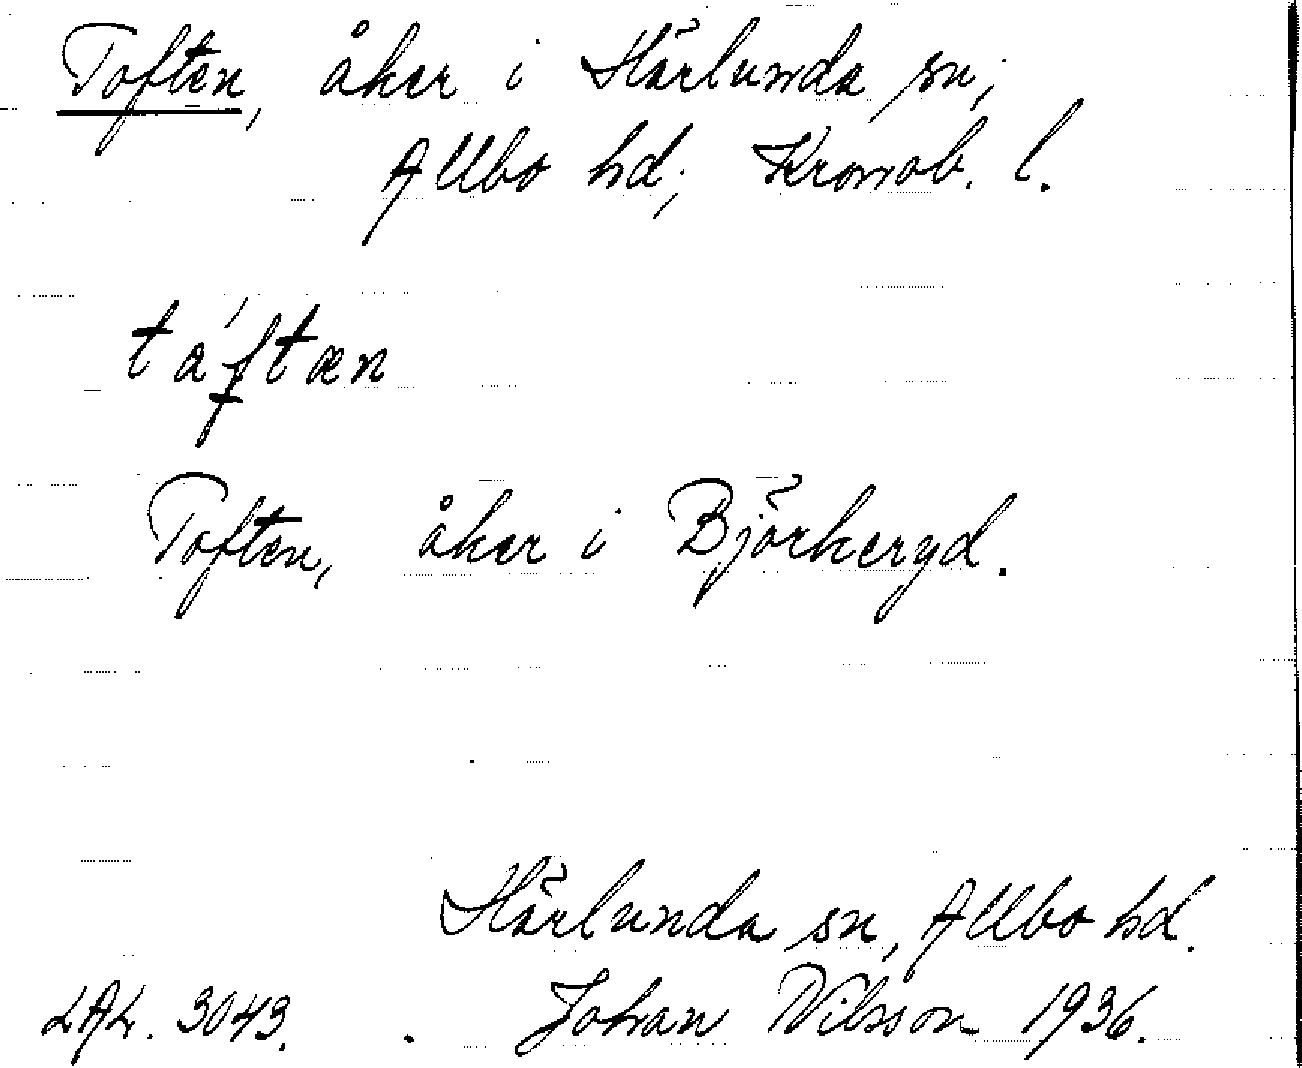 Toften, åker i Härlunda sn,
Allbo hd, Kronob. l.
táftæn
Toften, åker i Björkeryd.
Härlunda sn, Allbo hd.
LAL. 3043. Johan Nilsson 1936.